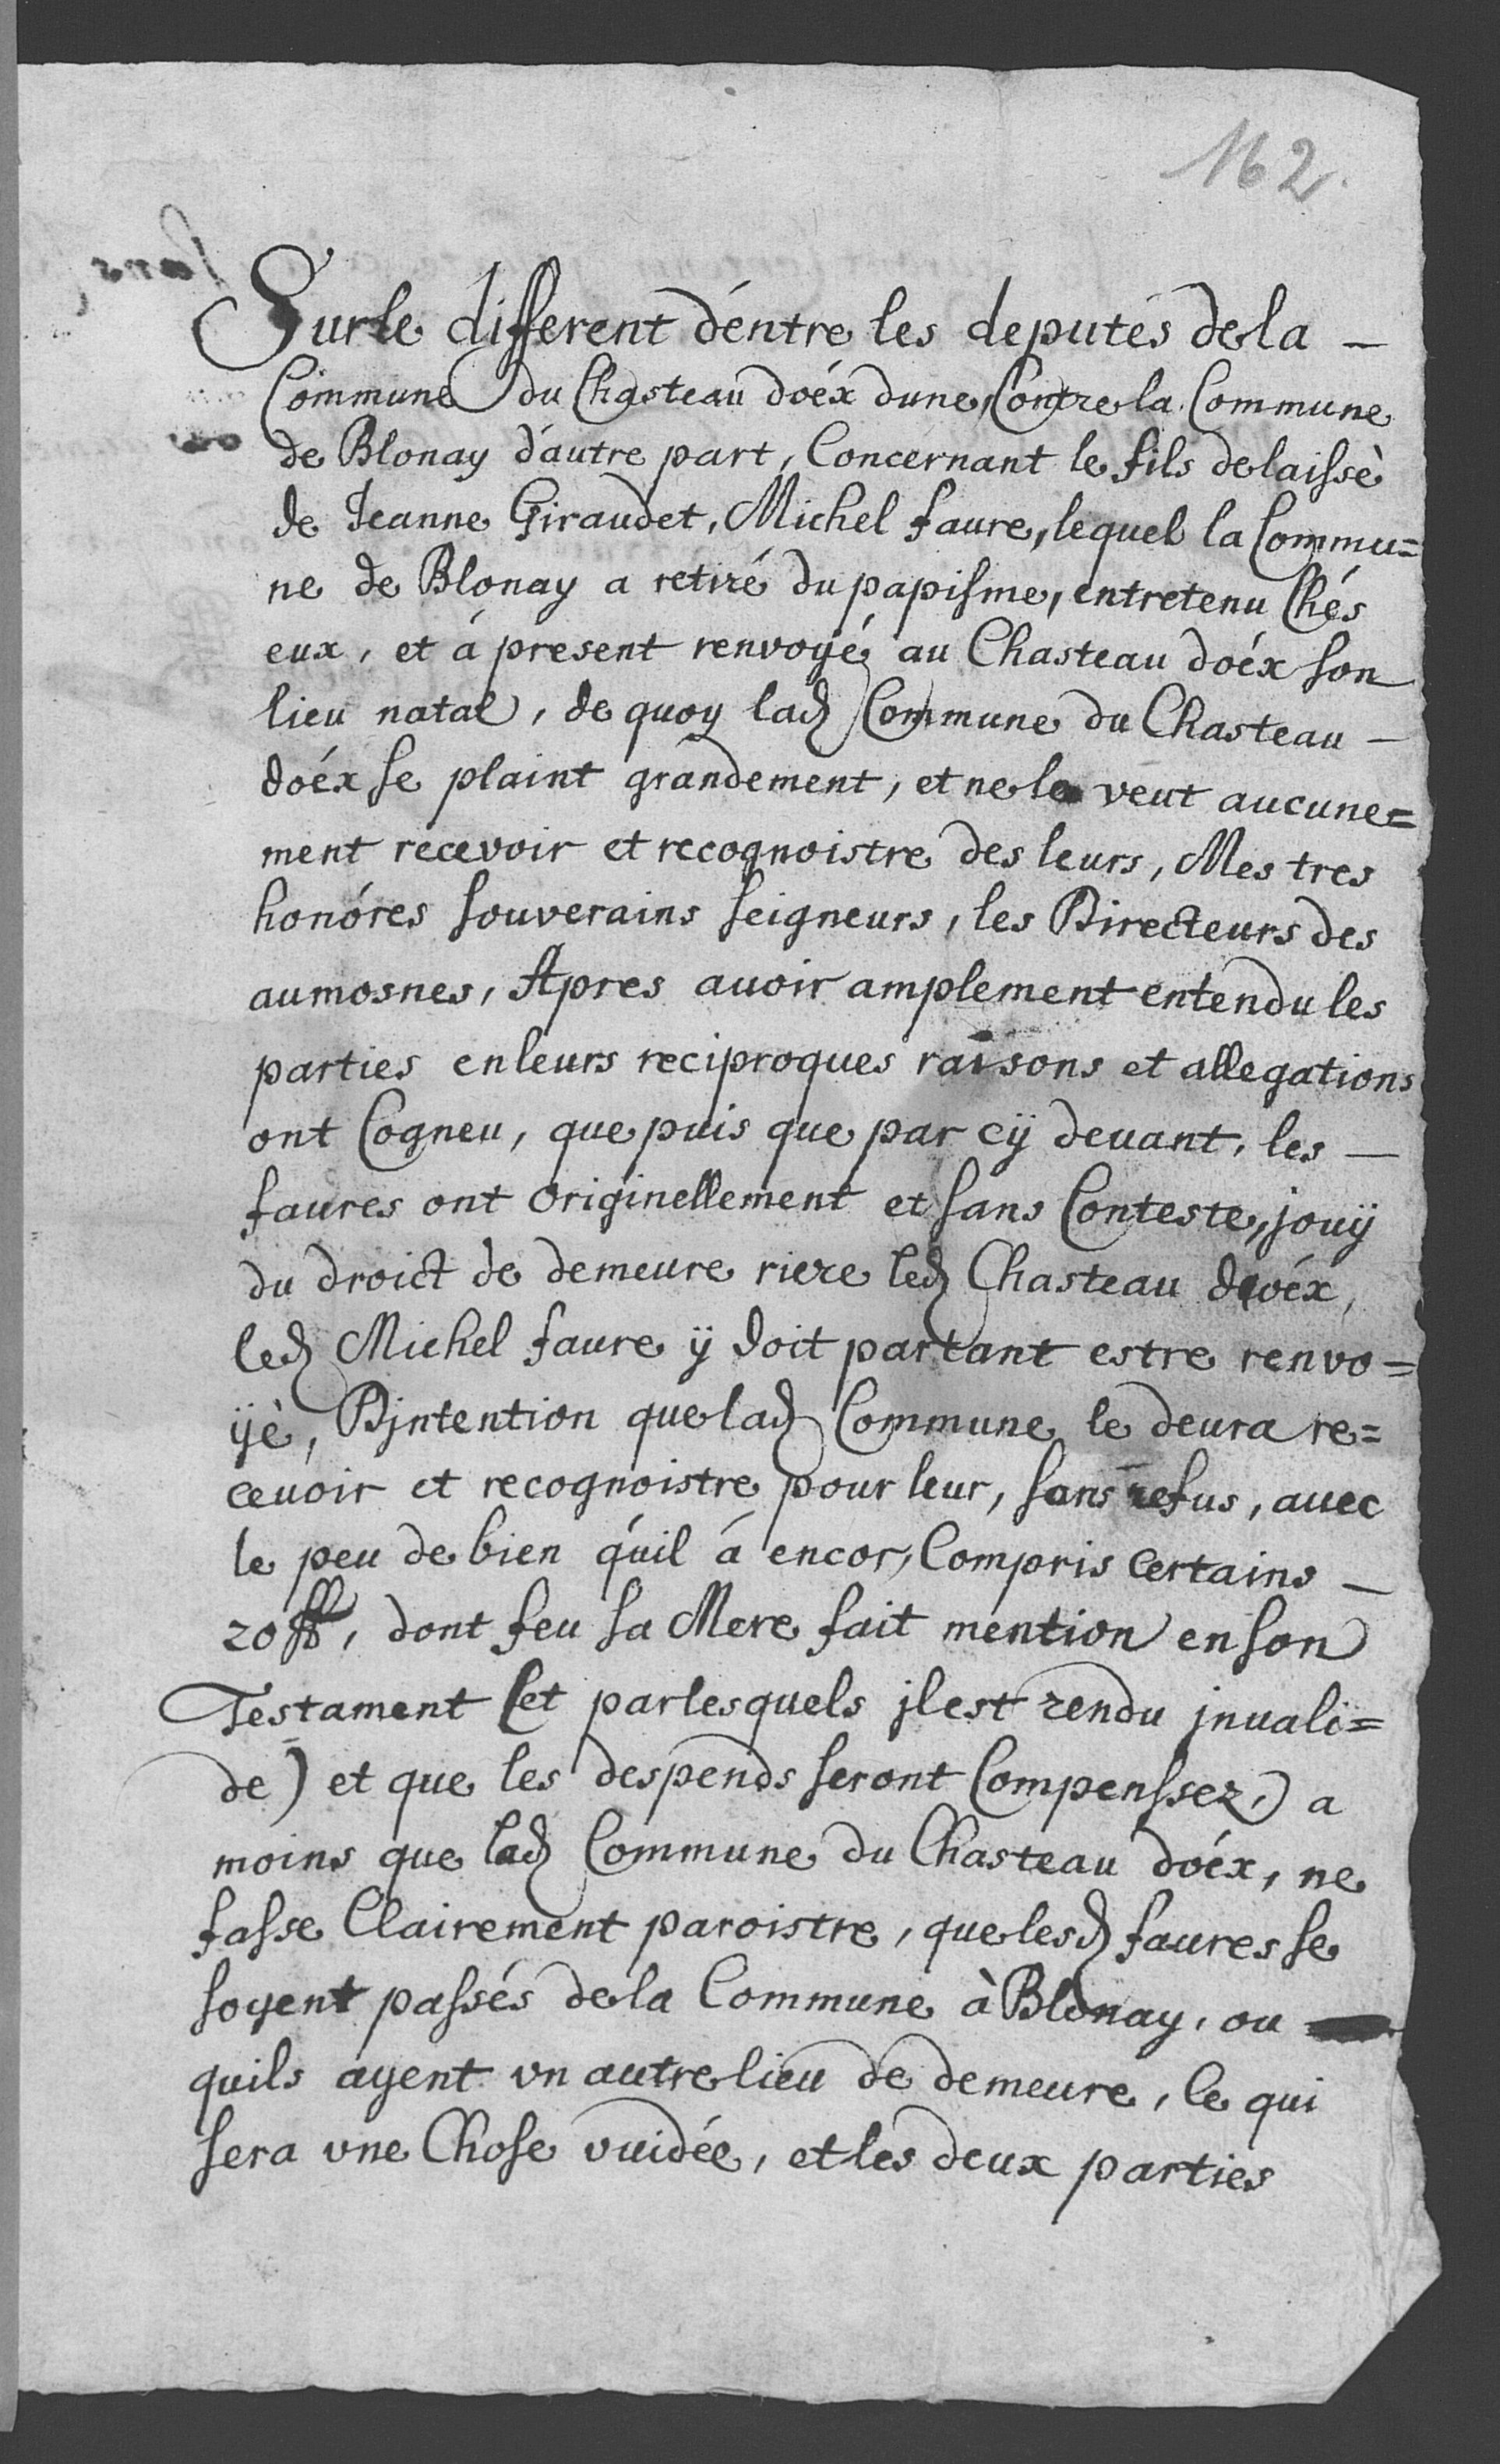 162.
Sur le different d'éntre les deputés de la —
Commune du Chasteau doéx dune, Contre la Commune
de Blonay d'autre part, Concernant le fils delaissè
de Jeanne Giraudet, Michel faure, lequel la Commu=
ne de Blonay a retiré du papisme, entretenu Chés
eux, et á present renvoÿé au Chasteau doéx son
lieu natal, de quoy lad. Commune du Chasteau —
doéx se plaint grandement, et ne le veut aucune=
ment recevoir et recognoistre des leurs, Mes tres
honóres souverains seigneurs, les Directeurs des
aumosnes, Apres auoir amplement entendu les
parties en leurs reciproques raisons et allegations
ont Cogneu, que puis que par cÿ deuant, les —
faures ont originellement et sans Conteste, jouÿ
du droict de demeure riere led. Chasteau doéx,
led. Michel faure ÿ doit partant estre renvo=
ÿè, Bjntention que lad. Commune le deura re=
ceuoir et recognoistre pour leur, sans refus, auec
le peu de bien qúil á encor, Compris certains —
20 ff, dont feu sa Mere fait mention en son
Testament (et par lesquels jl est rendu jnuali=
de) et que les despends seront Compenssez, a
moins que lad. Commune du Chasteau doéx, ne
fasse Clairement paroistre, que lesd. faures se
soyent passés de la Commune à Blonay, ou
quils ayent vn autre lieu de demeure, le qui
sera vne Chose vuidée, et les deux parties